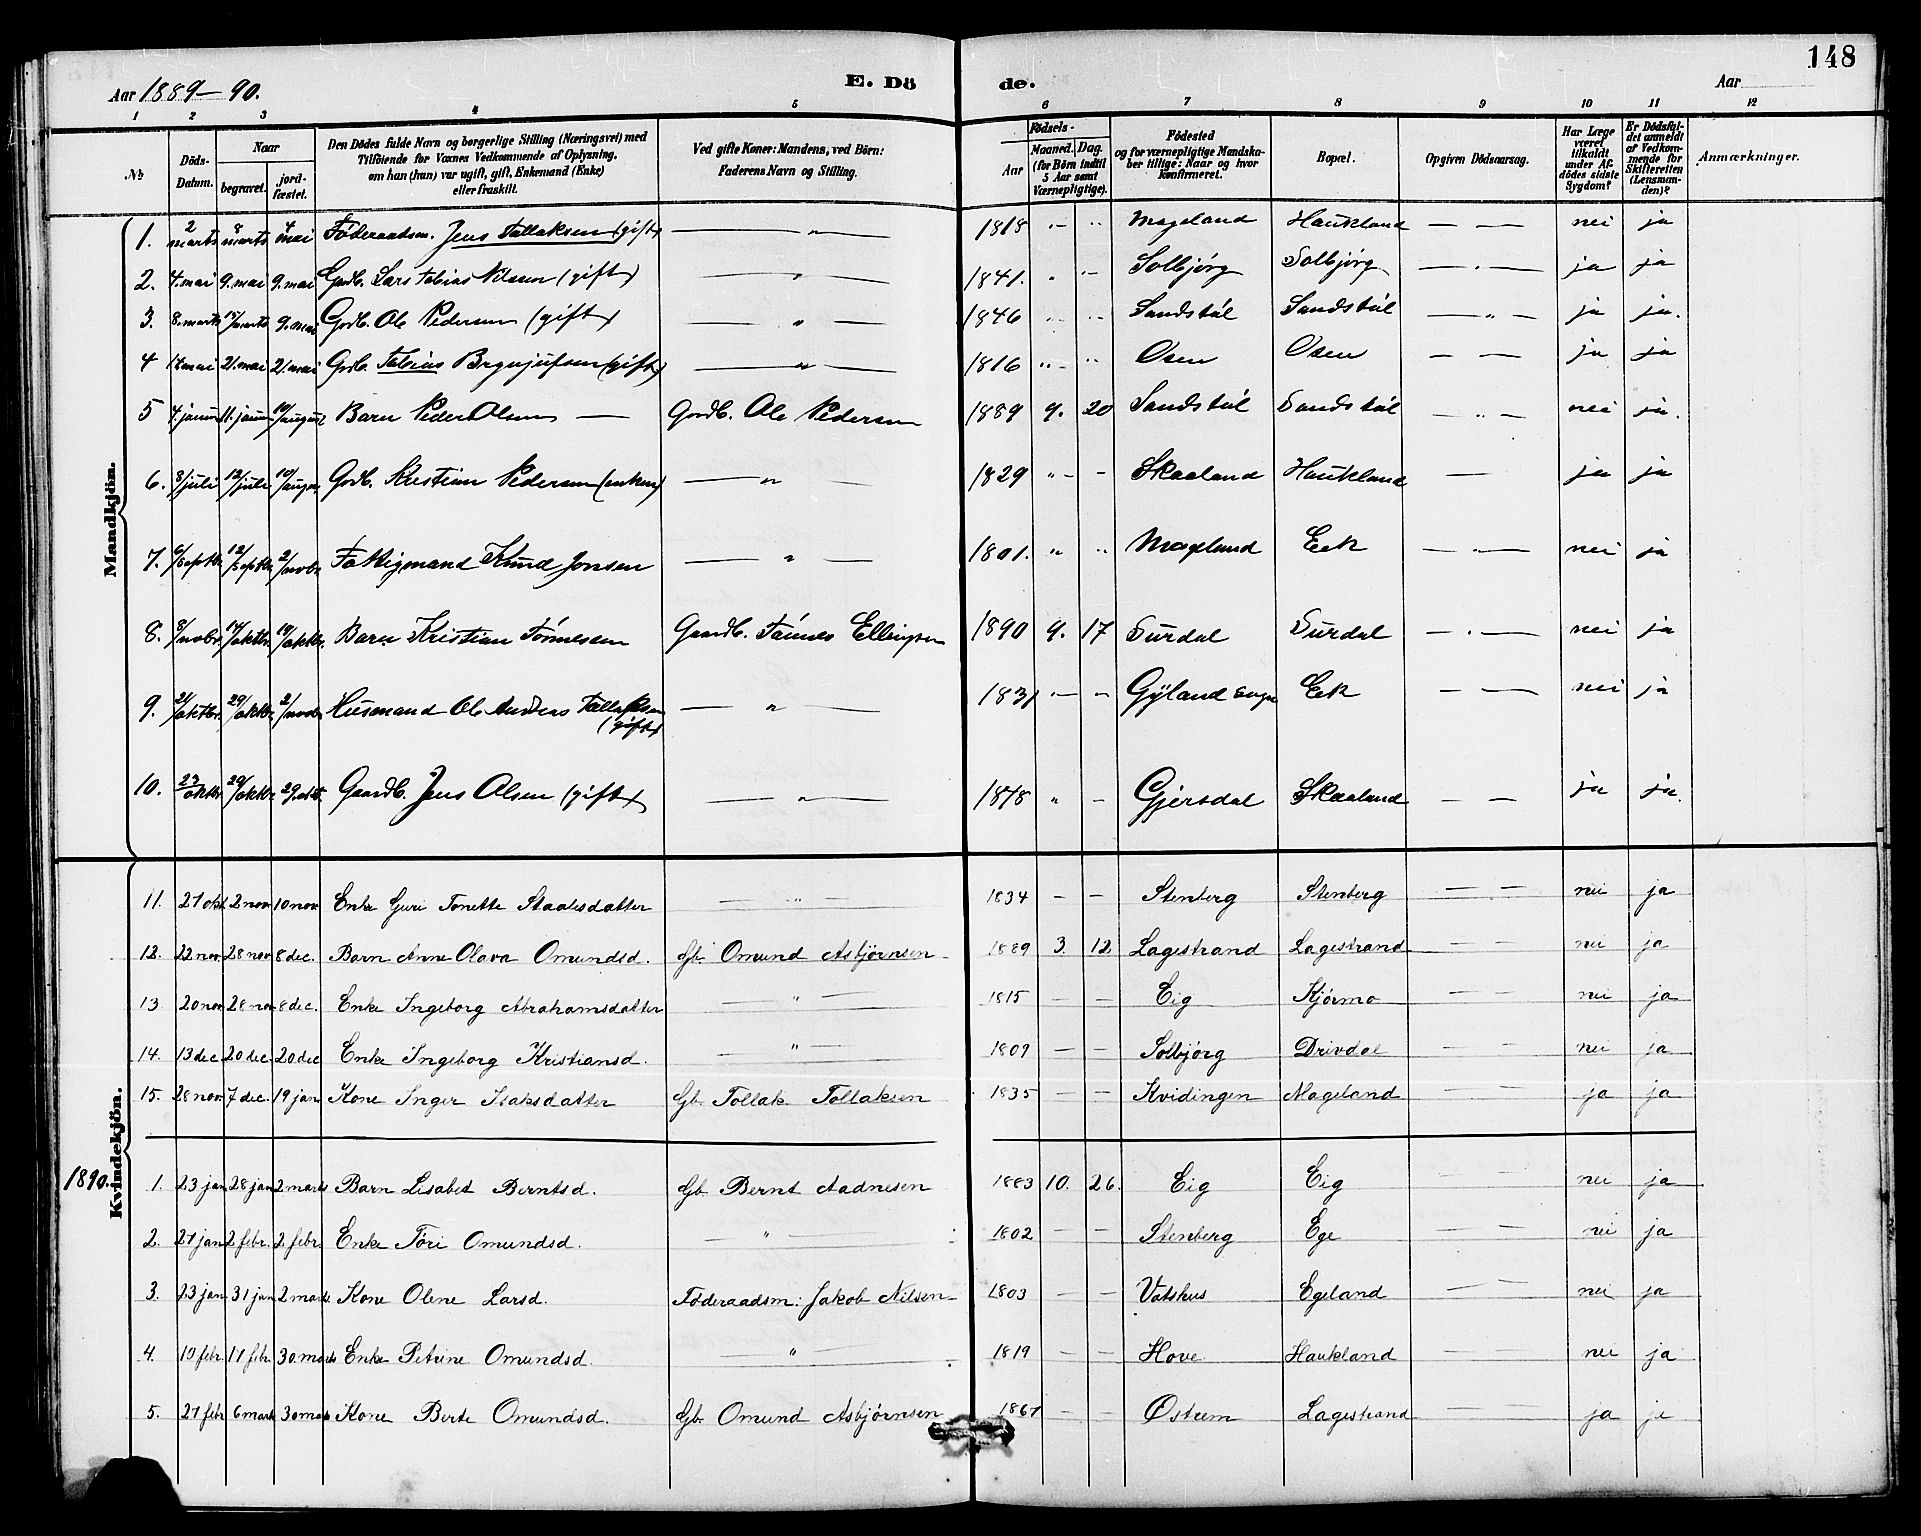 148
Aar 1889-90. E. Dö de. Aar
1 2 3 4 5 6 7 8 9 10 11 12
№ Döds-Datum. Naar begravet. jordfæstet. Den Dödes fulde Navn og borgerlige Stilling (Næringsvei) med Tilföiende for Voxnes Vedkommende af Oplysning, om han (hun) var ugift, gift, Enkemand (Enke) eller fraskilt. Ved gifte Koner: Mandens, ved Börn: Faderens Navn og Stilling. Födsels- Aar Maaned. Dag. (for Börn indtil 5 Aar samt Værnepligtige). Födested og for værnepligtige Mandskaber tillige: Naar og hvor konfirmeret. Bopæl. Opgiven Dödsaarsag. Har Læge været tilkaldt under Afdödes sidste Sygdom? Er Dödsfaldet anmeldt af Vedkommende for Skifteretten (Lensmanden)? Anmærkninger.
Mandkjön.
1. 2 marts 8 marts 4 mai Föderaadsm. Jens Tallaksen (gift) — " — 1818 Mageland Haukland — — nei ja
2. 4. mai 9. mai 9. mai Grdb. Lars Tobias Nilsen (gift) — " — 1841. Solbjörg Solbjörg — — ja ja
3. 8. marts 15/marts 9. mai Grdb. Ole Pedersen (gift) — " — 1846 Sandstöl Sandstöl — " — ja ja.
4 14 mai 21. mai 21. mai Grdb. Tobias (gift) — " — 1816 Osen Osen — — ja ja
5 Barn Peder Olsen — Gaardb. Ole Pedersen 1889 9. 20 Sandstöl Sandstöl — " — nei ja.
6. 8/juli 12/juli 10/ Grdb. Kristian Pedersen (enkem) — " — 1829 Skaaland Haukland — ja ja
7. 6/septbr. 12/septbr. 2/novbr. Fattigmand Knud Jonsen — " — 1801. Mageland Eek — " — nei ja
8. 8/novbr. 14/oktbr. 19/oktbr. Barn Kristian Tönnesen Gaardb. Tönnes Ellingsen 1890 9. 17 Surdal Surdal — — nei ja
9. 21/oktbr. 29/oktbr. 2/novbr. Husmand Ole Anders Tallaksen (gift) — " — 1831 Gyland Eek — — nei ja
10. 23 oktbr 29/oktbr. 29. okt. Gaardb. Jens Olsen (gift) — " — 1848 Gjersdal Skaaland — — ja ja.
Kvindekjön.
11. 27 okt. 2 nov. 10 nov. Enke Guri Tonette Staalesdatter — " — 1834 — — Stenberg Stenberg — — nei ja
12. 22 nov. 28 nov. 8 dec. Barn Anne Olava Omundsd. Gb. Omund Asbjørnsen 1889 3. 12. Lagestrand Lagestrand — — nei ja
13 20 nov. 28 nov. 8 dec. Enke Ingeborg Abrahamsdatter — " — 1815 — — Eig Kjörmo — — nei ja
14. 13 dec. 20 dec. 20 dec Enke Ingeborg Kristiansd. — " — 1809 — — Solbjörg Drivdal — — nei ja
15. 28 nov. 7 dec. 19 jan. Kone Inger Isaksdatter Gb. Tollak Tollaksen 1835 — — Kvidingen Mageland — — ja ja
1890. 1. 23 jan 28 jan 2 marts Barn Lisabet Berntsd. Gb. Bernt Aadnesen 1883 10. 26. Eig Eig nei ja
2. 27 jan 2 febr. 2 febr. Enke Töri Omundsd. — " — 1802 — — Stenberg Ege — — nei ja
3. 23 jan 31 jan 2 marts. Kone Olene Larsd. Föderaadsm: Jakob Nilsen 1803 — — Vatshus Egeland — — nei ja
4. 10 febr 17 febr. 30 marts Enke Petrine Omundsd. — " — 1819 — — Hove Haukland — — nei ja
5. 27 febr 6 marts 30 marts Kone Berte Omundsd. Gb. Omund Asbjørnsen 1867 — — Østrem Lagestrand — — ja ja